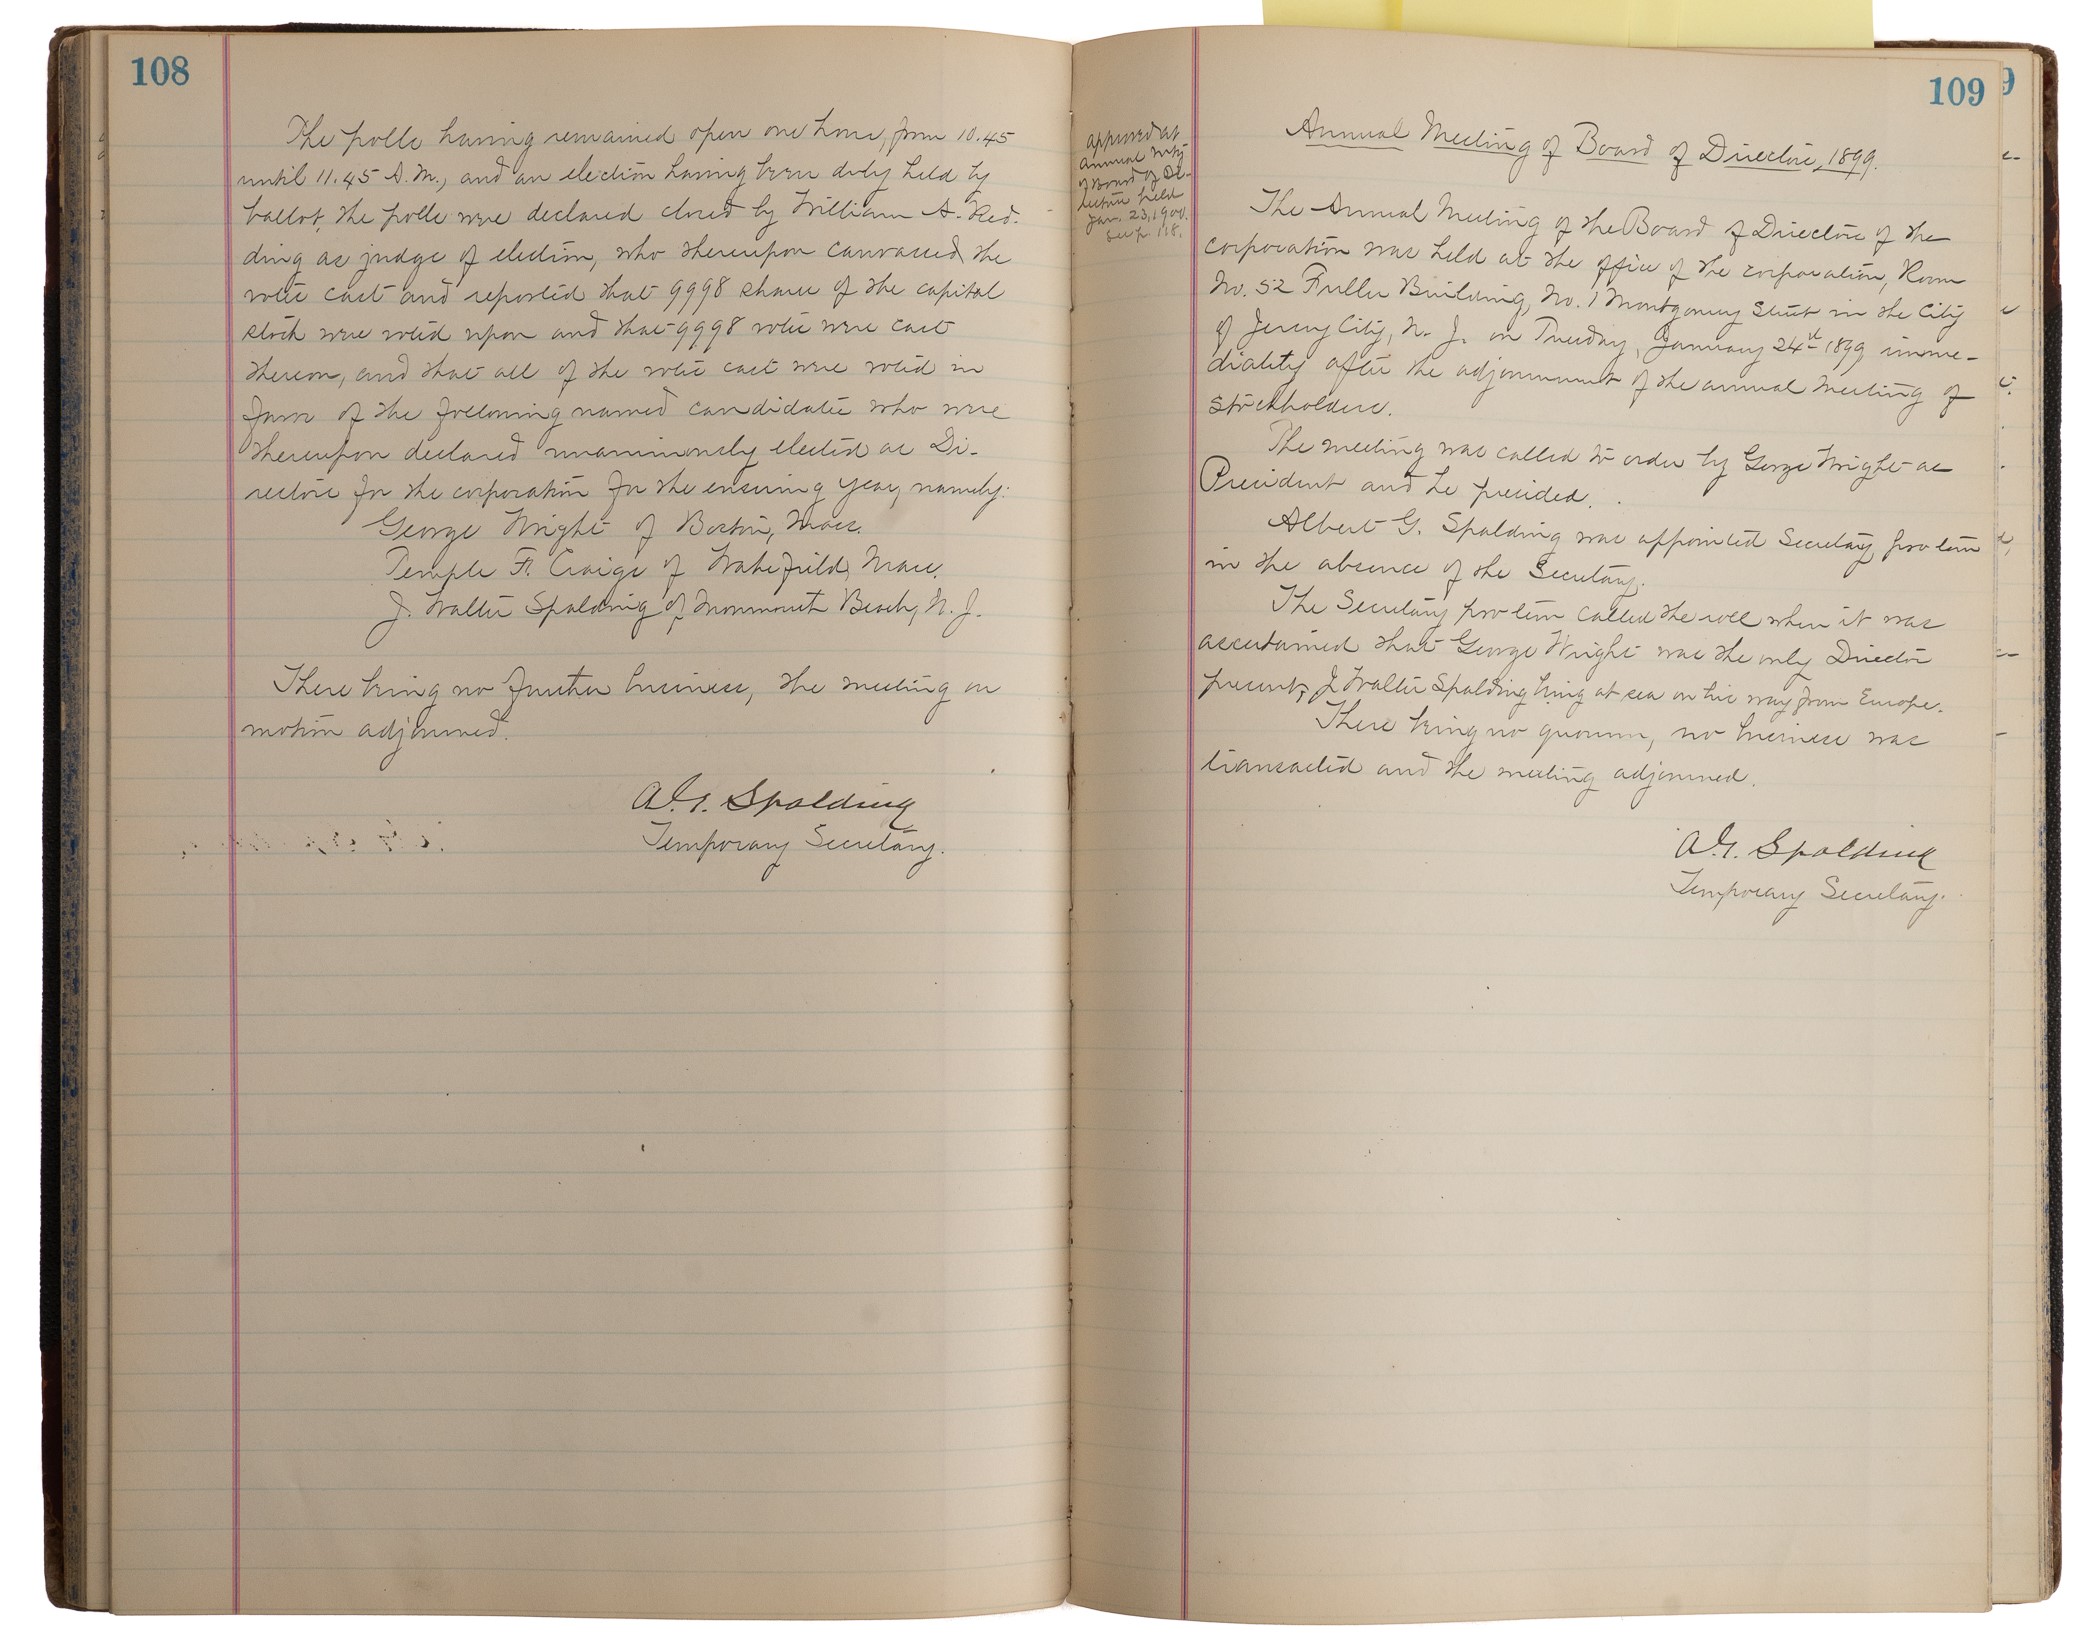 108
The polls having remained open one hour, from 10.45
until 11.45 A.M., and an election having been duly held by
ballot, the polls were declared closed by William A. Red-
ding as judge of election, who thereupon canvassed the
votes cast and reported that 9998 shares of the capital
stock were voted upon and that 9998 votes were cast
thereon, and that all of the votes cast were voted in
favor of the following named candidates who were
thereupon declared unanimously elected as Di-
rectors for the corporation for the ensuing year, namely:
George Wright of Boston, Mass.
Temple F. Craige of Wakefield, Mass.
J. Walter Spalding of Monmouth Beach, N. J.
There being no further business, the meeting on
motion adjourned.
A.G. Spalding
Temporary Secretary.
109
approved at
annual mtg
of Board of Di-
rectors held
Jan. 23, 1900.
See p. 118.
Annual Meeting of Board of Directors, 1899.
The Annual Meeting of the Board of Directors of the
corporation was held at the office of the corporation, Room
No. 52 Fuller Building, No. 1 Montgomery Street in the City
of Jersey City, N. J. on Tuesday, January 24th 1899 imme-
diately after the adjournment of the annual meeting of
stockholders.
The meeting was called to order by George Wright as
President and he presided.
Albert G. Spalding was appointed Secretary pro tem
in the absence of the Secretary.
The Secretary pro tem called the roll when it was
ascertained that George Wright was the only Director
present, J. Walter Spalding being at sea on his way from Europe.
There being no quorum, no business was
transacted and the meeting adjourned.
A.G. Spalding
Temporary Secretary.
9